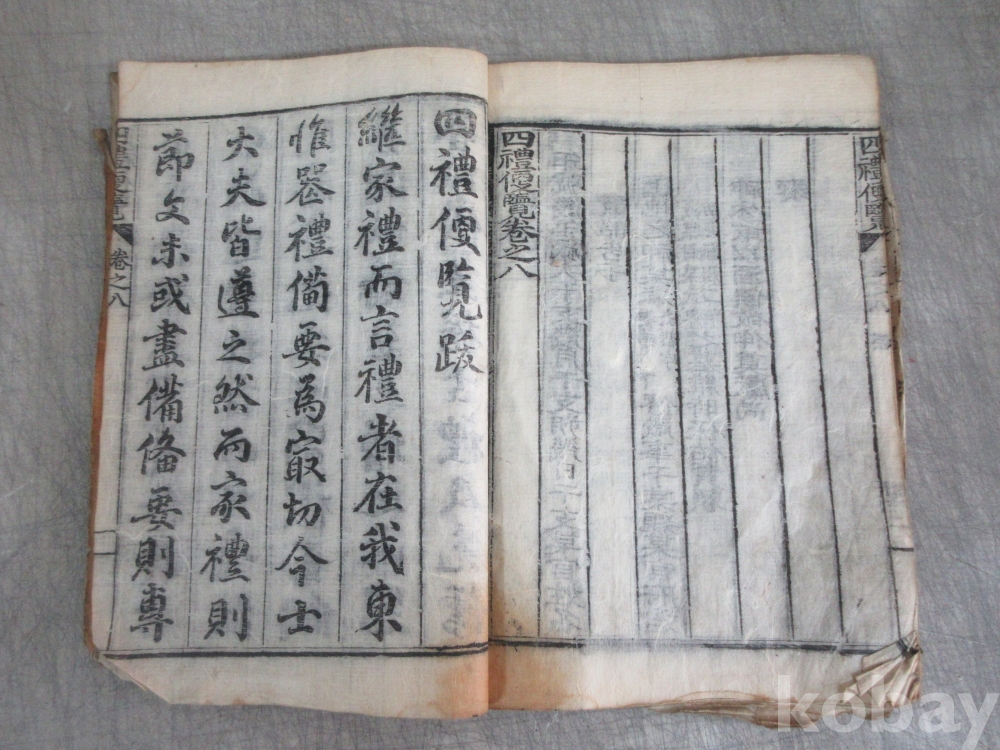 四禮便覽
四禮便覽卷之八
四禮便覽跋
繼家禮而言禮者在我東
惟喪禮備要為㝡切今士
大夫皆遵之然而家禮則
節文未或盡備備要則專
四禮便覽
卷之八
kobay